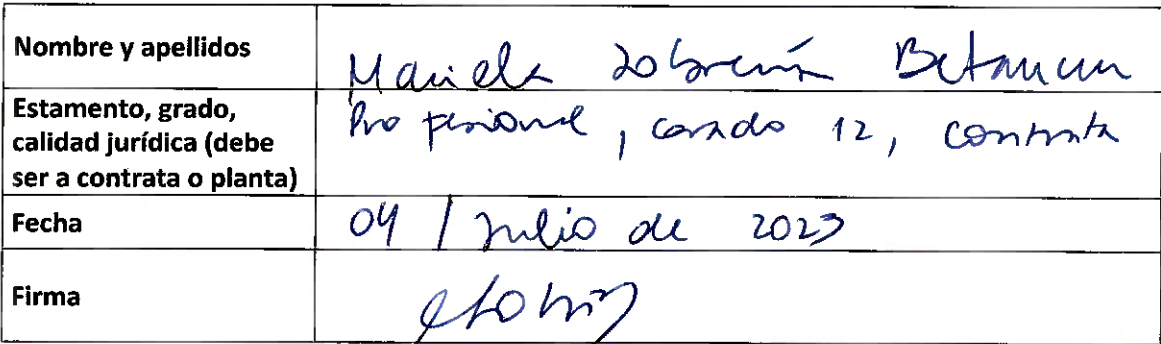 Nombre y apellidos
Mariela Sobrenía Betancur
Estamento, grado,
calidad jurídica (debe
ser a contrata o planta)
Profesional, grado 12, contrata
Fecha
04 / Julio de 2023
Firma